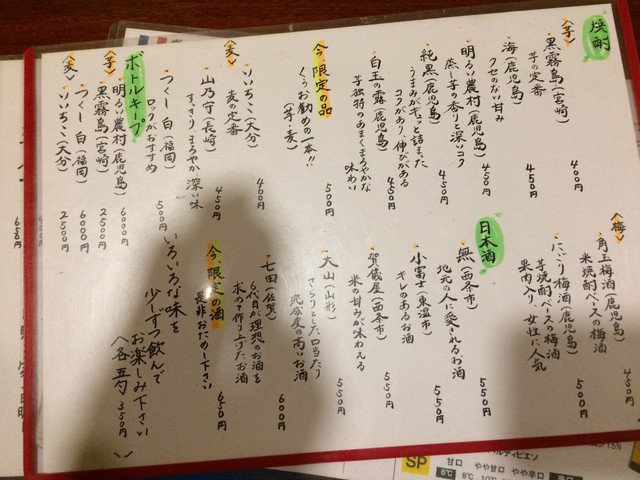 焼酎
〈芋〉
黒霧島(宮崎)
芋の定番
400円
海(鹿児島)
クセのない甘み
450円
明るい農村(鹿児島)
蒸し芋の香りと深いコク
450円
純黒(鹿児島)
うまみがギュッと詰まった
コクがあり、伸びがある
450円
白玉の露(鹿児島)
芋独特のあまくまろやかな
味わい
450円
今、限定の品
くらお勧めの一本!!
(芋・麦)
500円
〈麦〉
いいちこ(大分)
麦の定番
400円
山乃守(長崎)
すっきり まろやか 深い味
450円
つくし 白(福岡)
ロックがおすすめ
500円
ボトルキープ
〈芋〉
明るい農村(鹿児島)
6000円
黒霧島(宮崎)
2500円
〈麦〉
つくし 白(福岡)
6000円
いいちこ(大分)
2500円
〈梅〉
角玉梅酒(鹿児島)
米焼酎ベースの梅酒
450円
にごり梅酒(鹿児島)
芋焼酎ベースの梅酒
果肉入り、女性に人気
500円
日本酒
無(西条市)
地元の人に愛されるお酒
550円
小富士(東温市)
キレのあるお酒
550円
賀儀屋(西条市)
米の甘みが味わえる
550円
大山(山形)
さらりとした口当たり
完成度の高いお酒
600円
七田(佐賀)
6代目が理想のお酒を
求めて作り上げたお酒
650円
今、限定の酒
是非おためし下さい
いろいろな味を
少しずつ飲んで
お楽しみ下さい
〈各 五勺 350円〉
650円
SP
甘口
やや甘口
やや辛口
6℃
8℃
15%